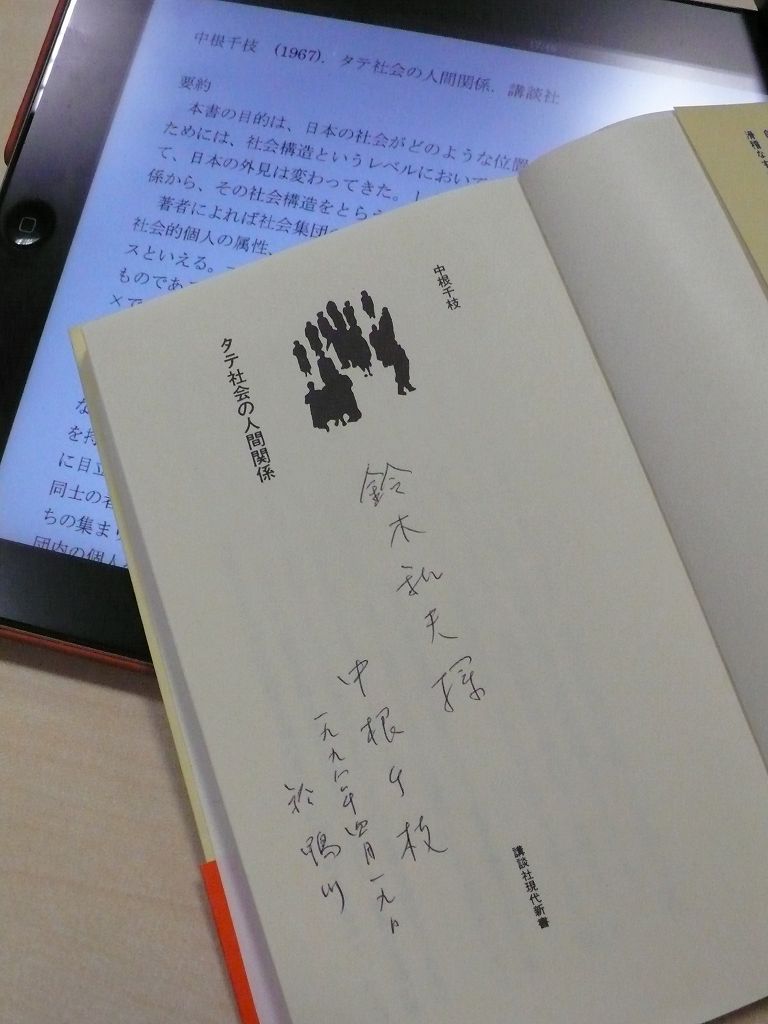 中根千枝 (1967). タテ社会の人間関係. 講談社
要約
本書の目的は、日本の社会がどのような位置
ためには、社会構造というレベルにおいて
て、日本の外見は変わってきた。
係から、その社会構造をとら
著者によれば社会集団
社会的個人の属性、
スといえる。
ものであっ
×で
な
を持
に目立
同士の
ちの集まり
団内の個人
滑稽な
中根千枝
タテ社会の人間関係
鈴木和夫様
中根千枝
一九九八年四月一九日
於鴨川
講談社現代新書